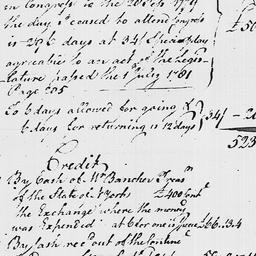 in Congress is the 20 Feb 1779
the day I ceased to attend Congress £50
is 296 days at 34/ Specie p day
agreeable to an act of the Legis-
lature passed the 1st July 1781
Page 205
To 6 days allowed for going &
6 days for returning is 12 days 34/ 20
523
Credit
By Cash of Wm Bancker Treasr
of the State of N York £400 Cont
the Exchange where the money
was Expended at 6 for one is £66.13.4
By Cash recd out of the Contine